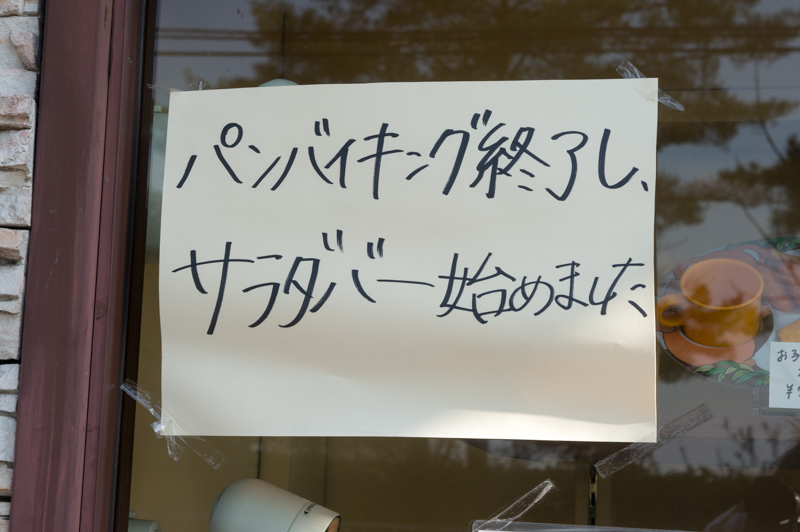 パンバイキング終了し、
サラダバー始めました